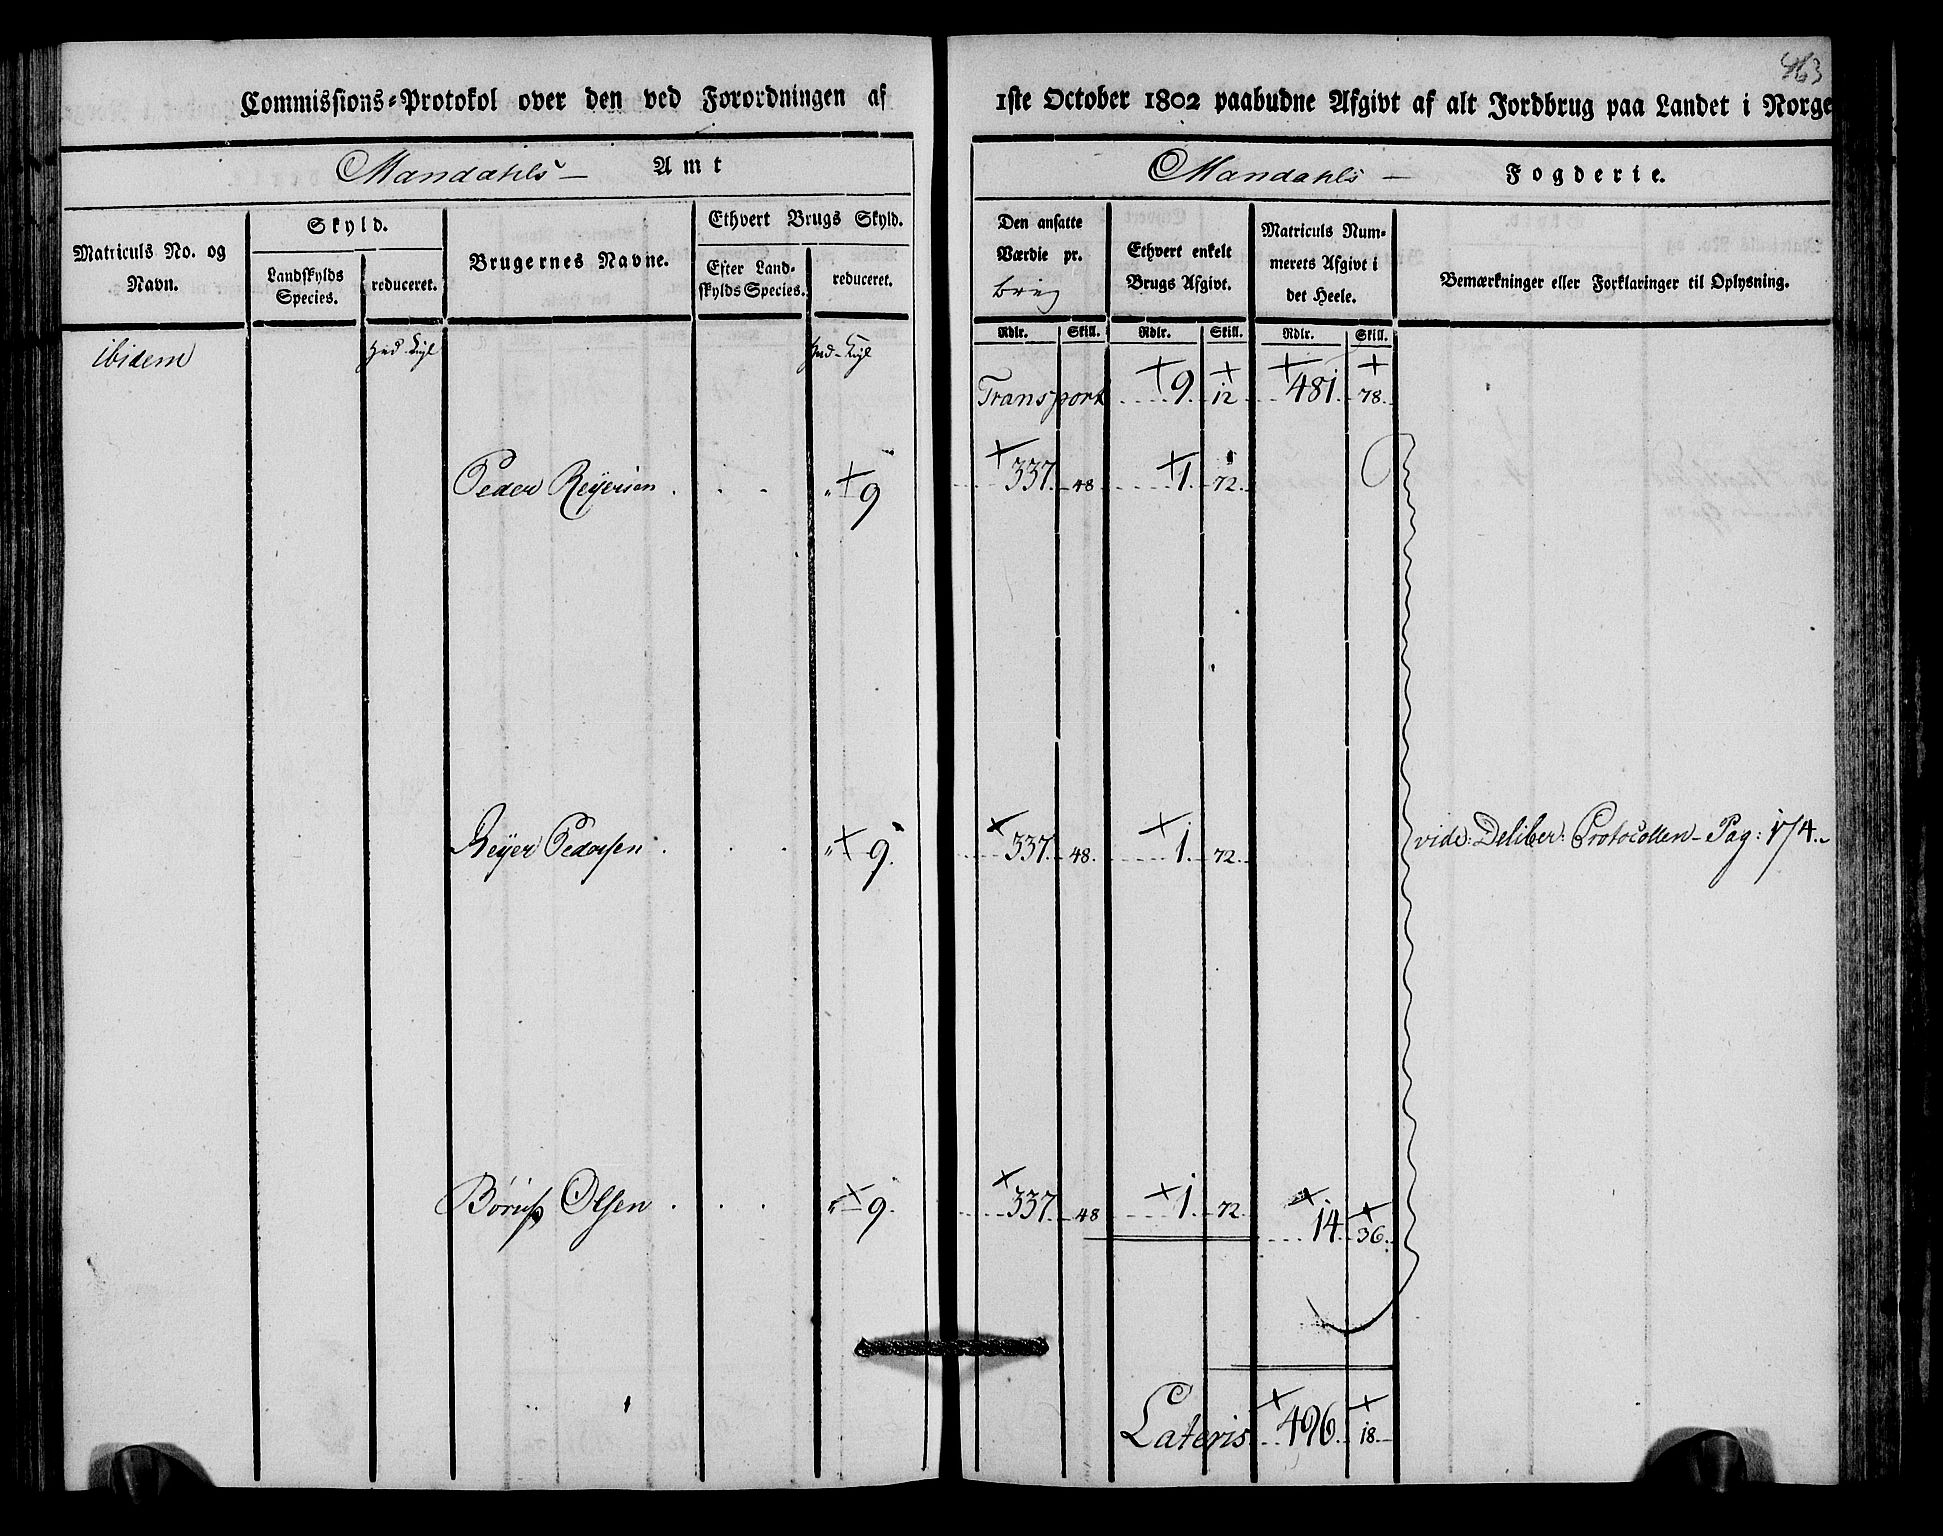 463
Commissions-Protokol over den ved Forordningen af 1ste October 1802 paabudne Afgivt af alt Jordbrug paa Landet i Norge
Mandahls Amt
Mandahls Fogderie.
Matriculs No. og Navn.
Skyld.
Landskylds Species.
reduceret.
Brugernes Navne.
Ethvert Brugs Skyld.
Efter Landskylds Species.
reduceret.
Den ansatte Værdie pr. brug
Ethvert enkelt Brugs Afgivt.
Matriculs Nummerets Afgivt i det Heele.
Bemærkninger eller Forklaringer til Oplysning.
Rdlr. Skill. Rdlr. Skill. Rdlr. Skill.
ibidem
Transport 9 12 481 78
Peder Reyersen 9 337 48 1 72
Reyer Pedersen 9 337 48 1 72 vide: Deliber: Protocollen Pag: 174
Olsen 9 337 48 1 72 14 36
Lateris 496 18